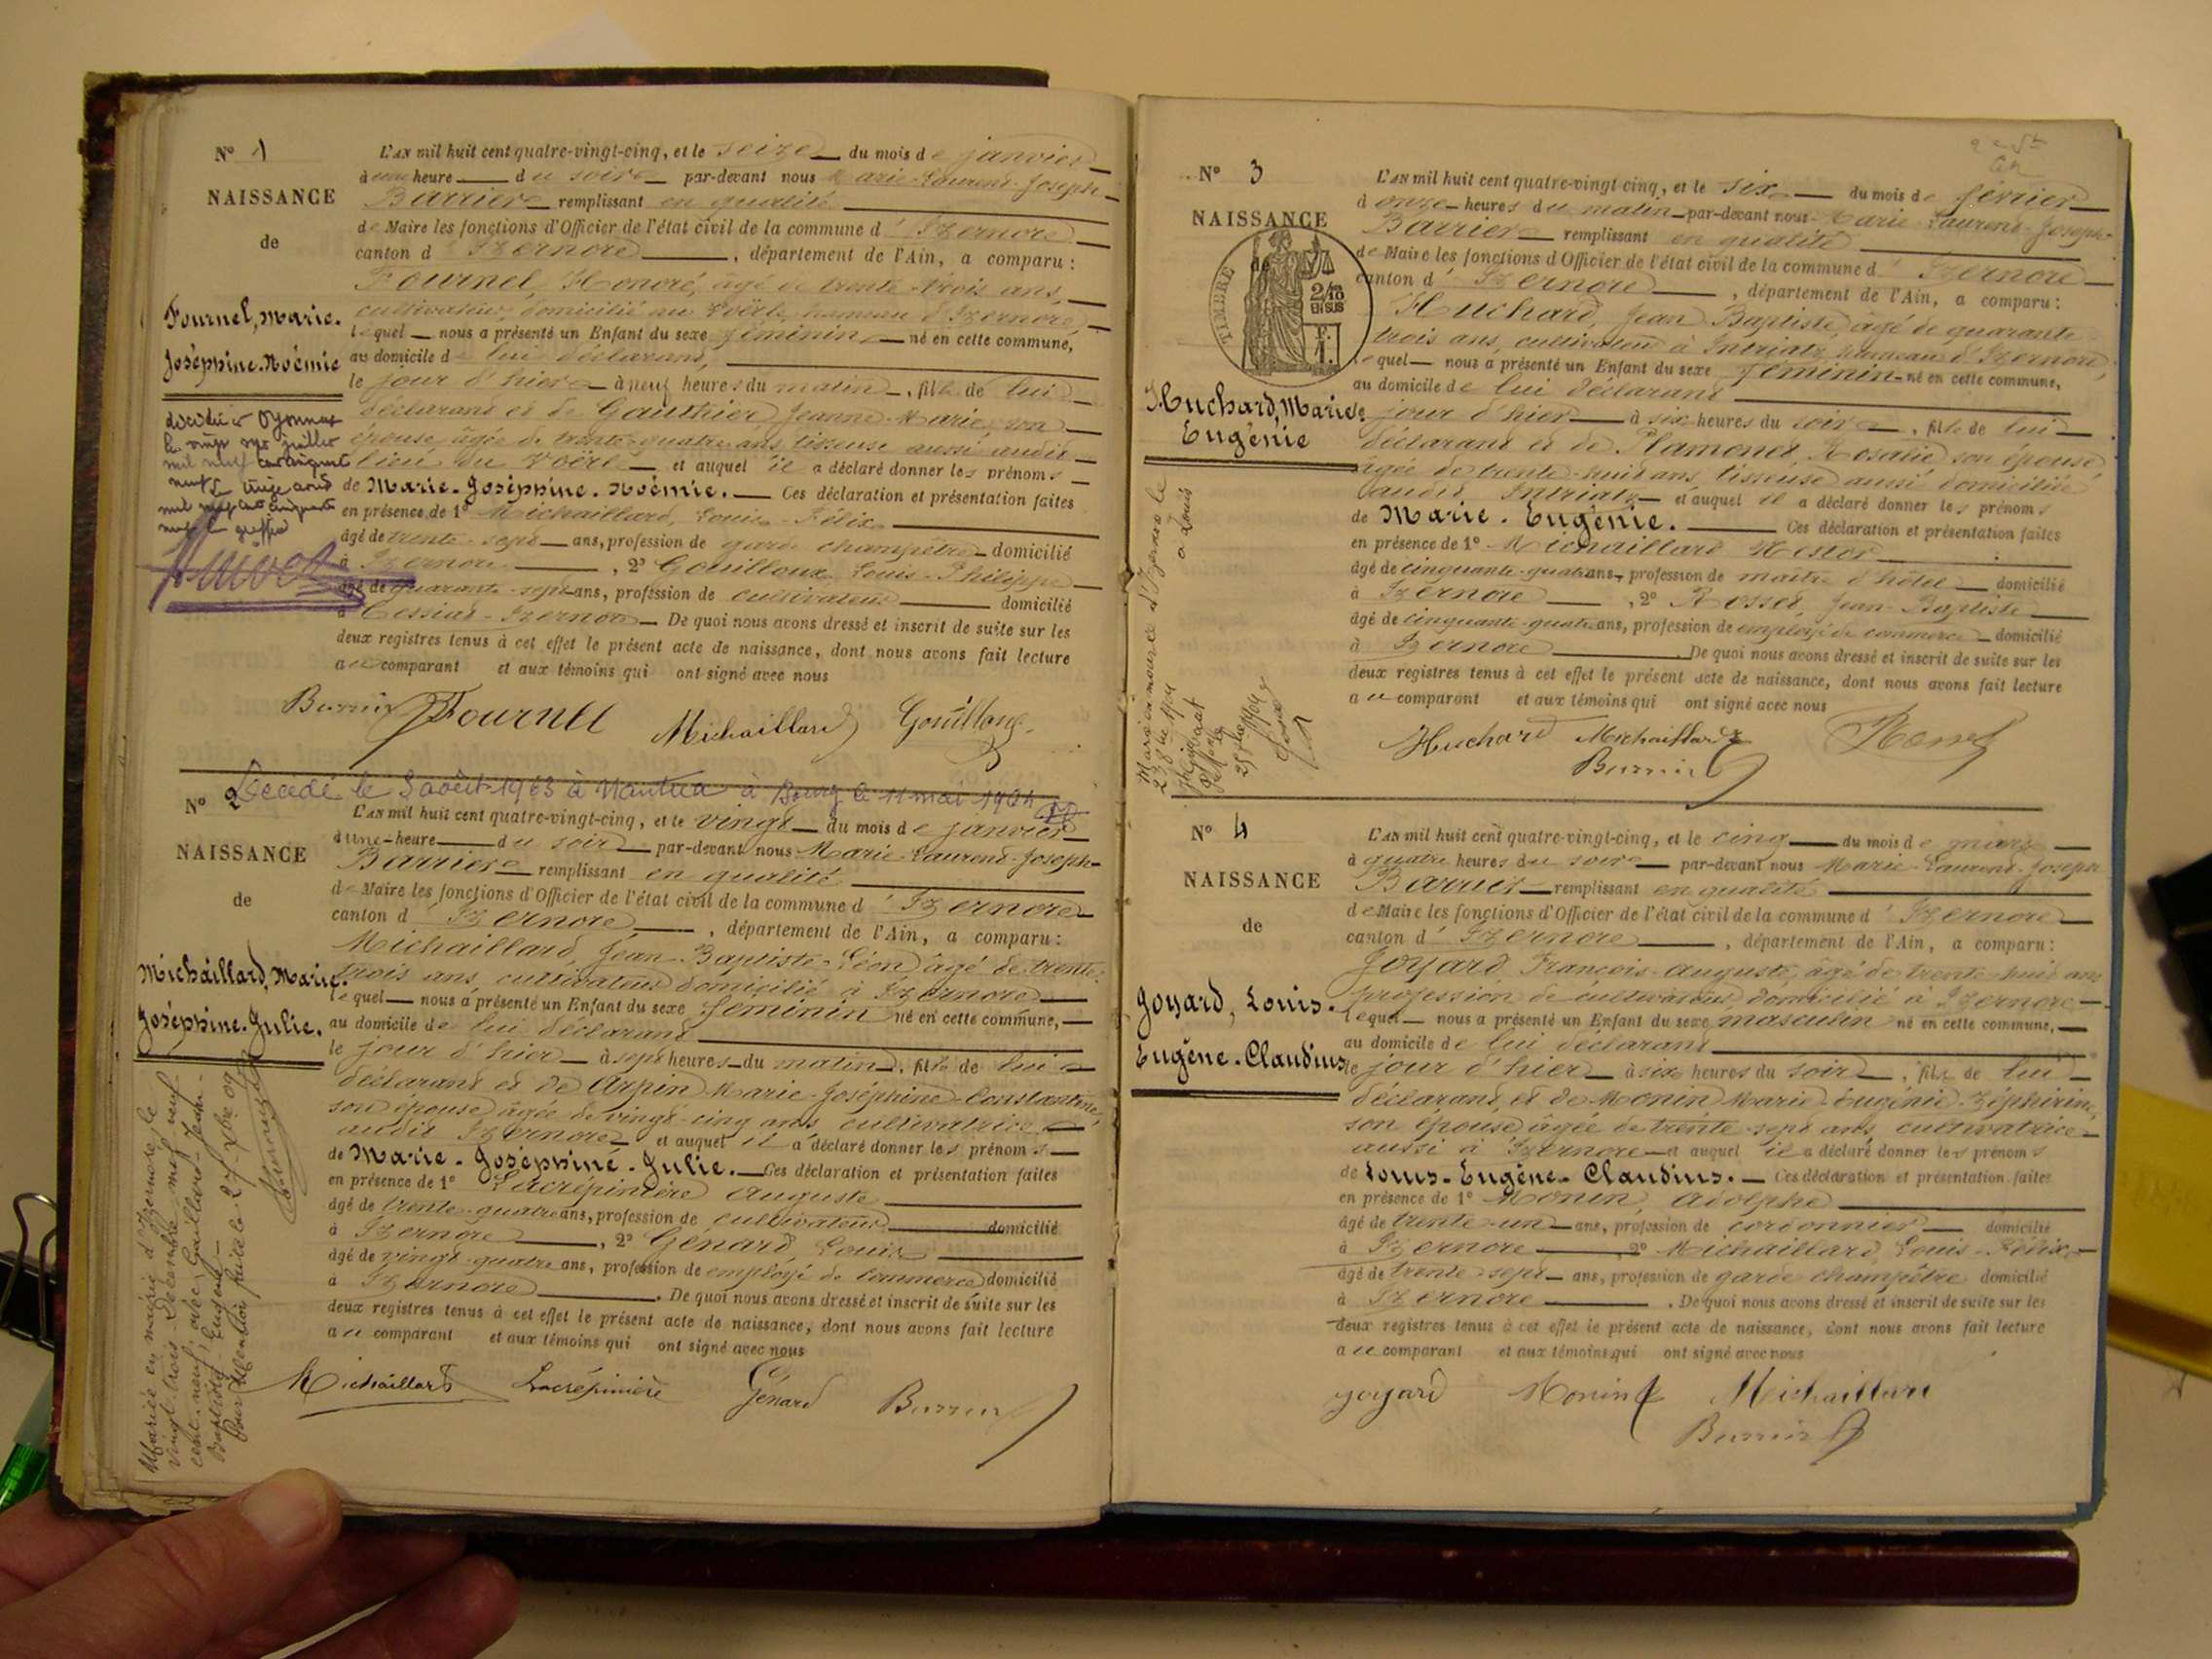 N° 1
NAISSANCE
de
Fournel, Marie.
Joséphine-Noémie
décédée à Oyonnax
le vingt juillet
mil neuf cent cinquante
neuf
L'AN mil huit cent quatre-vingt-cinq, et le seize du mois de janvier
à une heure du soir par-devant nous Marie-Laurent-Joseph
Barrier remplissant en qualité
de Maire les fonctions d'Officier de l'état civil de la commune d'Izernore
canton d'Izernore, département de l'Ain, a comparu :
Fournel, Honoré, âgé de trente-trois ans,
cultivateur, domicilié au Voërle, hameau d'Izernore,
lequel nous a présenté un Enfant du sexe féminin né en cette commune,
au domicile de lui déclarant,
le jour d'hier à neuf heures du matin, fille de lui
déclarant et de Gauthier Jeanne-Marie, son
épouse âgée de trente-quatre ans, tisseuse aussi audit
lieu du Voërle et auquel il a déclaré donner les prénoms
de Marie-Joséphine-Noémie. Ces déclaration et présentation faites
en présence de 1° Michaillard, Louis-Félix
âgé de trente-sept ans, profession de garde champêtre domicilié
à Izernore, 2° Gouilloux Louis-Philippe
âgé de quarante-sept ans, profession de cultivateur domicilié
à Cessiat-Izernore De quoi nous avons dressé et inscrit de suite sur les
deux registres tenus à cet effet le présent acte de naissance, dont nous avons fait lecture
au comparant et aux témoins qui ont signé avec nous
Fournel Michaillard Gouilloux
Décédé le 3 août 1963 à Nantua à Bourg le 11 mai 1964
N° 2
NAISSANCE
de
Michaillard, Marie.
Joséphine-Julie.
Mariée en mairie d'Izernore le
vingt-trois Décembre mil neuf
cent neuf, avec Gaillard-Jean-
Pour mention faite le 27 Xbre 09
L'AN mil huit cent quatre-vingt-cinq, et le vingt du mois de janvier
à une heure du soir par-devant nous Marie-Laurent-Joseph
Barrier remplissant en qualité
de Maire les fonctions d'Officier de l'état civil de la commune d'Izernore
canton d'Izernore, département de l'Ain, a comparu :
Michaillard, Jean-Baptiste-Léon, âgé de trente
trois ans, cultivateur domicilié à Izernore
lequel nous a présenté un Enfant du sexe féminin né en cette commune,
au domicile de lui déclarant
le jour d'hier à sept heures du matin, fille de lui
déclarant et de Arpin Marie-Joséphine-Constantine,
son épouse âgée de vingt-cinq ans, cultivatrice
audit Izernore et auquel il a déclaré donner les prénoms
de Marie-Joséphine-Julie. Ces déclaration et présentation faites
en présence de 1° Lacrépinière Auguste
âgé de trente-quatre ans, profession de cultivateur domicilié
à Izernore, 2° Génard, Louis
âgé de vingt-quatre ans, profession de employé de commerce domicilié
à Izernore. De quoi nous avons dressé et inscrit de suite sur les
deux registres tenus à cet effet le présent acte de naissance, dont nous avons fait lecture
au comparant et aux témoins qui ont signé avec nous
Michaillard Lacrépinière Génard
N° 3
NAISSANCE
de
TIMBRE
2/10
EN SUS
Huchard, Marie
Eugénie
L'AN mil huit cent quatre-vingt-cinq, et le six du mois de février
à onze heures du matin par-devant nous Marie-Laurent-Joseph
Barrier remplissant en qualité
de Maire les fonctions d'Officier de l'état civil de la commune d'Izernore
canton d'Izernore, département de l'Ain, a comparu :
Huchard, Jean Baptiste, âgé de quarante
trois ans, cultivateur à Intriatz, hameau d'Izernore,
lequel nous a présenté un Enfant du sexe féminin né en cette commune,
au domicile de lui déclarant
le jour d'hier à six heures du soir, fille de lui
déclarant et de Plamonet Rosalie son épouse
âgée de trente-huit ans, tisseuse aussi domiciliée
audit Intriatz et auquel il a déclaré donner les prénoms
de Marie-Eugénie. Ces déclaration et présentation faites
en présence de 1° Michaillard Hestor
âgé de cinquante-quatre ans, profession de maître d'hôtel domicilié
à Izernore, 2° Rosset, Jean-Baptiste
âgé de cinquante-quatre ans, profession de employé de commerce domicilié
à Izernore. De quoi nous avons dressé et inscrit de suite sur les
deux registres tenus à cet effet le présent acte de naissance, dont nous avons fait lecture
au comparant et aux témoins qui ont signé avec nous
Huchard Michaillard
N° 4
NAISSANCE
de
Joyard, Louis.
Eugène-Claudius
L'AN mil huit cent quatre-vingt-cinq, et le cinq du mois de mars
à quatre heures du soir par-devant nous Marie-Laurent-Joseph
Barrier remplissant en qualité
de Maire les fonctions d'Officier de l'état civil de la commune d'Izernore
canton d'Izernore, département de l'Ain, a comparu :
Joyard, François-Auguste, âgé de trente-huit ans
profession de cultivateur domicilié à Izernore
lequel nous a présenté un Enfant du sexe masculin né en cette commune,
au domicile de lui déclarant
le jour d'hier à six heures du soir, fils de lui
déclarant, et de Monin Marie-Eugénie-Zéphirine,
son épouse âgée de trente-sept ans, cultivatrice
aussi à Izernore et auquel il a déclaré donner les prénoms
de Louis-Eugène-Claudius. Ces déclaration et présentation faites
en présence de 1° Monin, Adolphe
âgé de trente-un ans, profession de cordonnier domicilié
à Izernore, 2° Michaillard, Louis-Félix
âgé de trente-sept ans, profession de garde champêtre domicilié
à Izernore. De quoi nous avons dressé et inscrit de suite sur les
deux registres tenus à cet effet le présent acte de naissance, dont nous avons fait lecture
au comparant et aux témoins qui ont signé avec nous
Joyard Monin Michaillard